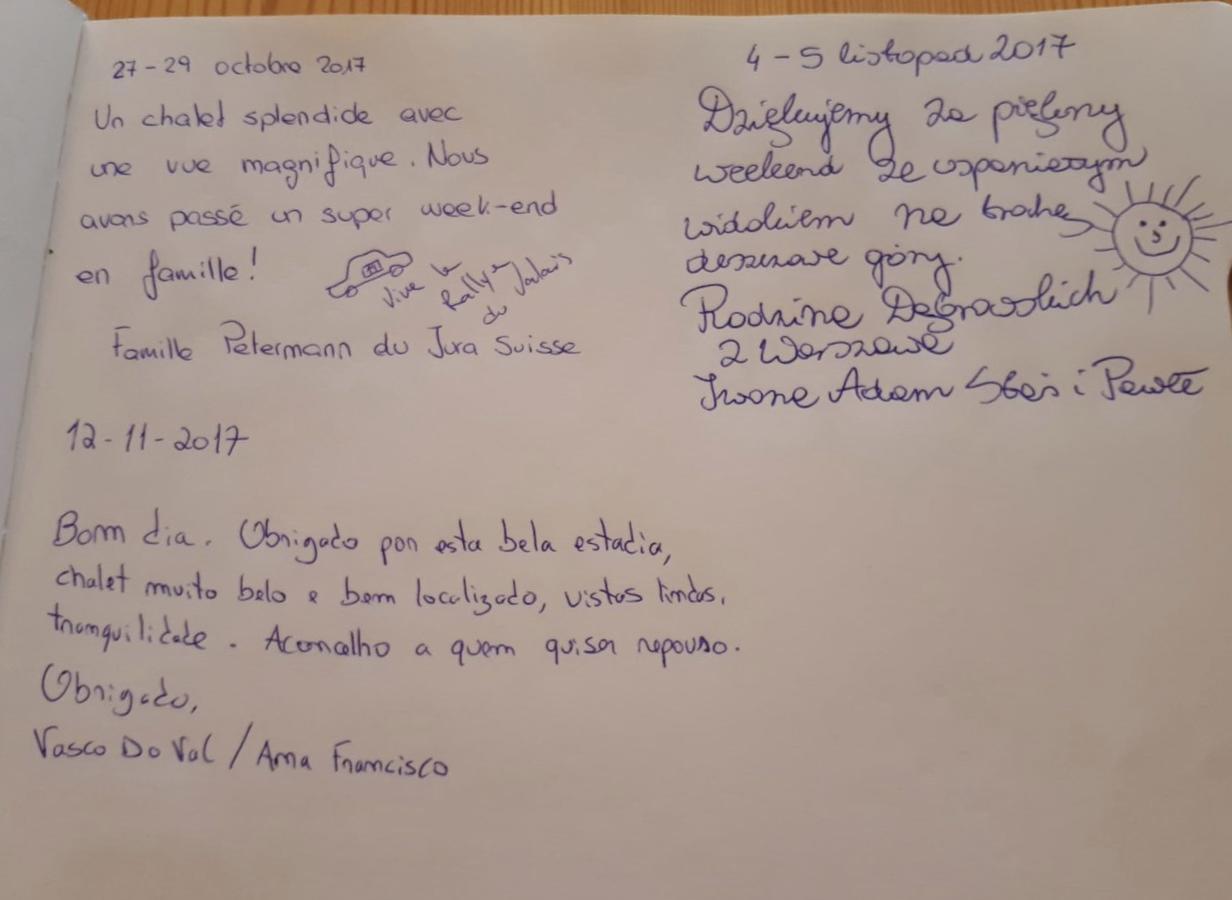 27-29 octobre 2017
Un chalet splendide avec
une vue magnifique. Nous
avons passé un super week-end
en famille!
Vive le
Rallye
du
Valais
Famille Petermann du Jura Suisse
4-5 listopad 2017
Dziękujemy za piękny
weekend ze wspaniałym
widokiem na trochę
deszczowe góry.
Rodzina Dąbrowskich
z Warszawy
Iwona Adam Staś i Paweł
12-11-2017
Bom dia. Obrigado por esta bela estadia,
chalet muito belo e bem localizado, vistas lindas,
tranquilidade. Aconcelho a quem quiser repouso.
Obrigado,
Vasco Do Val / Ana Francisco